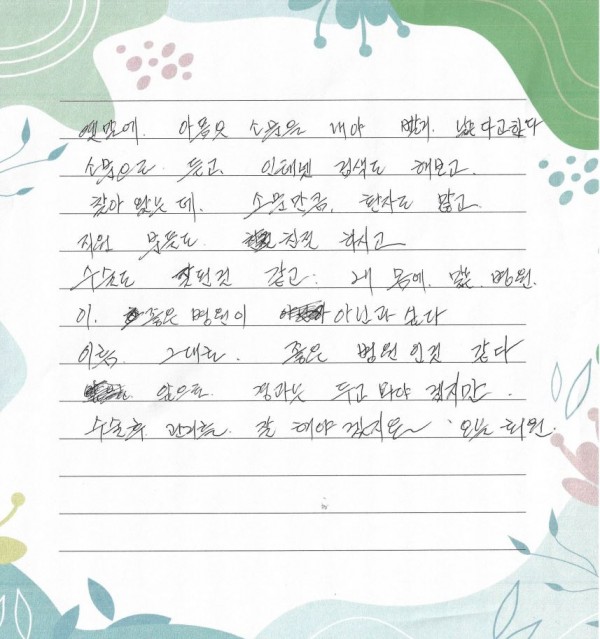 옛말에. 아픔은 소문을 내야 빨리 낫는다고 한다
소문으로 듣고. 인테넷 검색도 해보고.
찾아 왔는데. 소문만큼. 환자도 많고
직원 분들도 친절 하시고
수술도 잘된것 같고. 내 몸에. 맞는 병원.
이. 좋은 병원이 아닌가 싶다
이름. 그대로. 좋은 병원 인것 같다
앞으로. 경과는 두고 봐야 겠지만.
수술후 관리를. 잘 해야 겠지요~ 오늘 퇴원.